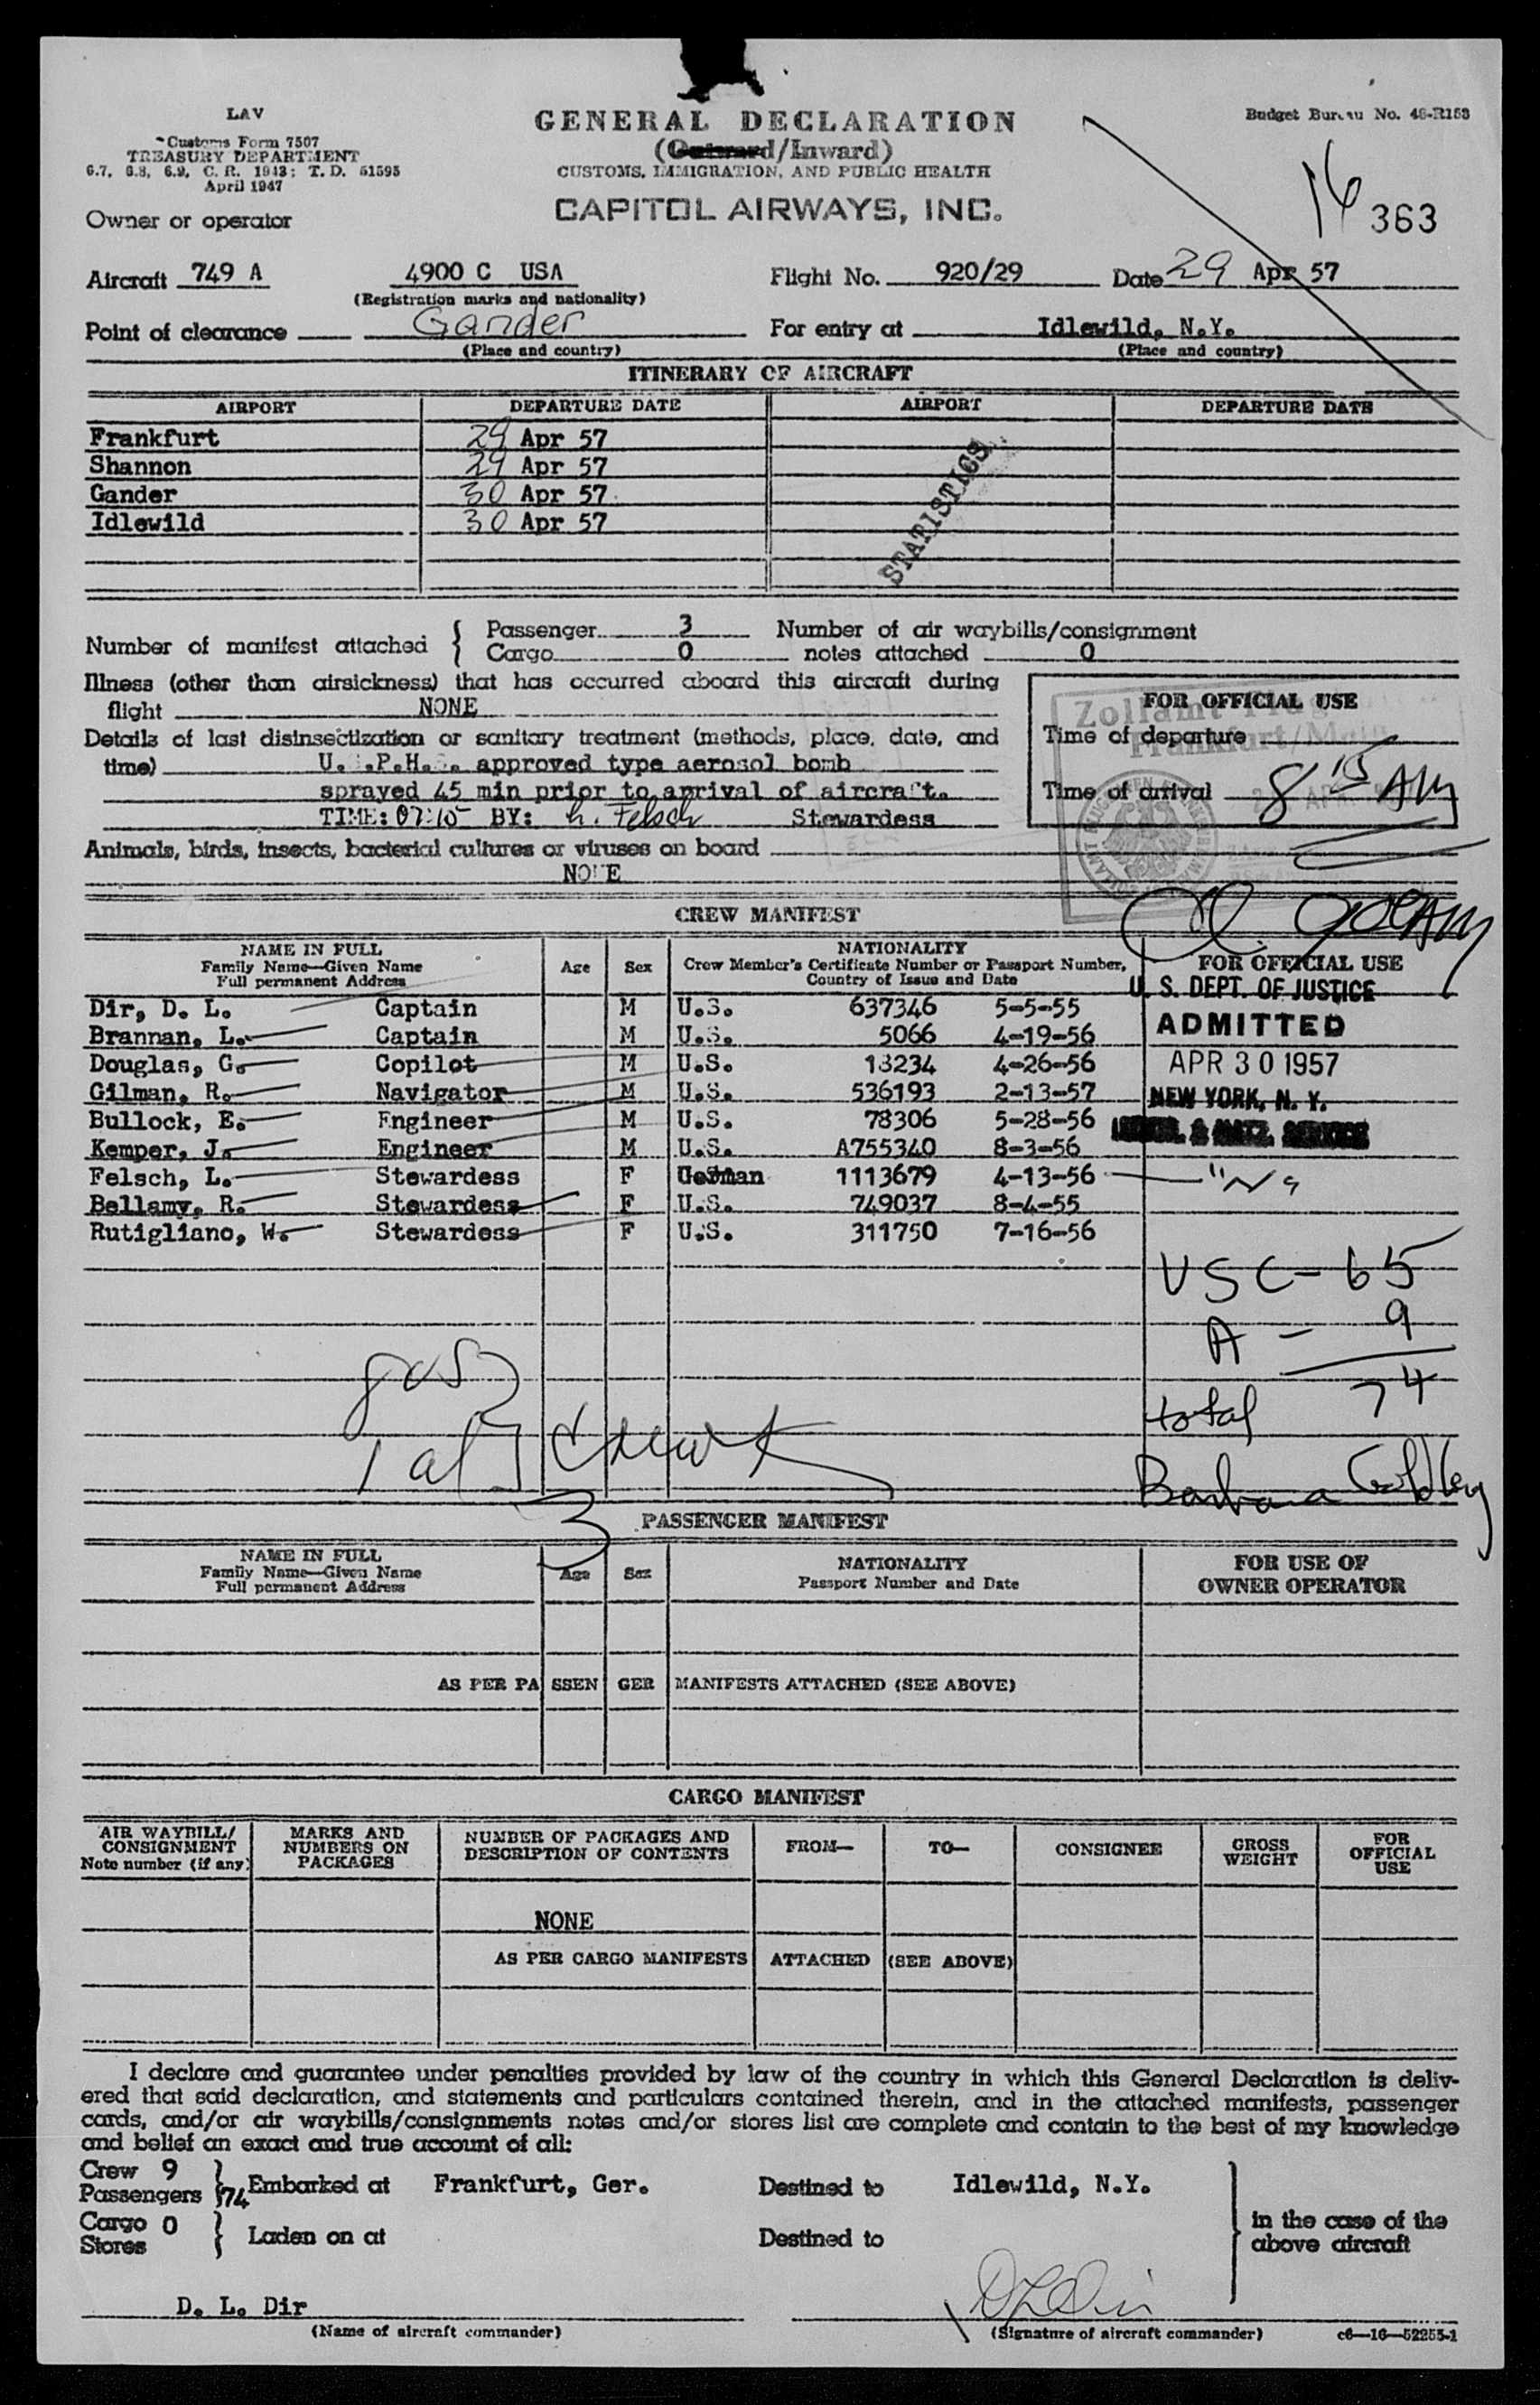 LAV
Customs Form 7507
TREASURY DEPARTMENT
6.7, 6.8, 6.9, C. R. 1943; T. D. 51595
April 1947
GENERAL DECLARATION
(Outward/Inward)
CUSTOMS, IMMIGRATION, AND PUBLIC HEALTH
CAPITOL AIRWAYS, INC.
Budget Bureau No. 48-R153
16
363
Owner or operator
Aircraft 749 A 4900 C USA Flight No. 920/29 Date 29 Apr 57
(Registration marks and nationality)
Point of clearance Gander For entry at Idlewild, N.Y.
(Place and country) (Place and country)
ITINERARY OF AIRCRAFT
AIRPORT DEPARTURE DATE AIRPORT DEPARTURE DATE
Frankfurt 29 Apr 57
Shannon 29 Apr 57
Gander 30 Apr 57
Idlewild 30 Apr 57
STATISTICS
Number of manifest attached { Passenger 3 Number of air waybills/consignment
Cargo 0 notes attached 0
Illness (other than airsickness) that has occurred aboard this aircraft during
flight NONE
Details of last disinsectization or sanitary treatment (methods, place, date, and
time) U. .P.H. . approved type aerosol bomb
sprayed 45 min prior to arrival of aircraft.
TIME: 07:15 BY: L. Felsch Stewardess
FOR OFFICIAL USE
Zollamt Flug
Frankfurt/Main
Time of departure
Time of arrival 8 15 AM
Animals, birds, insects, bacterial cultures or viruses on board
NONE
CREW MANIFEST
NAME IN FULL
Family Name—Given Name
Full permanent Address
Age Sex
NATIONALITY
Crew Member's Certificate Number or Passport Number,
Country of Issue and Date
FOR OFFICIAL USE
U. S. DEPT. OF JUSTICE
ADMITTED
APR 30 1957
NEW YORK, N. Y.
Dir, D. L. Captain M U.S. 637346 5-5-55
Brannan, L. Captain M U.S. 5066 4-19-56
Douglas, G. Copilot M U.S. 18234 4-26-56
Gilman, R. Navigator M U.S. 536193 2-13-57
Bullock, E. Engineer M U.S. 78306 5-28-56
Kemper, J. Engineer M U.S. A755340 8-3-56
Felsch, L. Stewardess F German 1113679 4-13-56
Bellamy, R. Stewardess F U.S. 749037 8-4-55
Rutigliano, W. Stewardess F U.S. 311750 7-16-56
USC - 65
A - 9
total 74
8 USC
1 al Crew
3
PASSENGER MANIFEST
NAME IN FULL
Family Name—Given Name
Full permanent Address
Age Sex
NATIONALITY
Passport Number and Date
FOR USE OF
OWNER OPERATOR
AS PER PASSENGER MANIFESTS ATTACHED (SEE ABOVE)
CARGO MANIFEST
AIR WAYBILL/
CONSIGNMENT
Note number (if any)
MARKS AND
NUMBERS ON
PACKAGES
NUMBER OF PACKAGES AND
DESCRIPTION OF CONTENTS
FROM— TO— CONSIGNEE
GROSS
WEIGHT
FOR
OFFICIAL
USE
NONE
AS PER CARGO MANIFESTS ATTACHED (SEE ABOVE)
I declare and guarantee under penalties provided by law of the country in which this General Declaration is deliv-
ered that said declaration, and statements and particulars contained therein, and in the attached manifests, passenger
cards, and/or air waybills/consignments notes and/or stores list are complete and contain to the best of my knowledge
and belief an exact and true account of all:
Crew 9
Passengers 74 Embarked at Frankfurt, Ger. Destined to Idlewild, N.Y.
Cargo 0
Stores Laden on at Destined to
in the case of the
above aircraft
D. L. Dir
D L Dir
(Name of aircraft commander) (Signature of aircraft commander) c6—16—52255-1